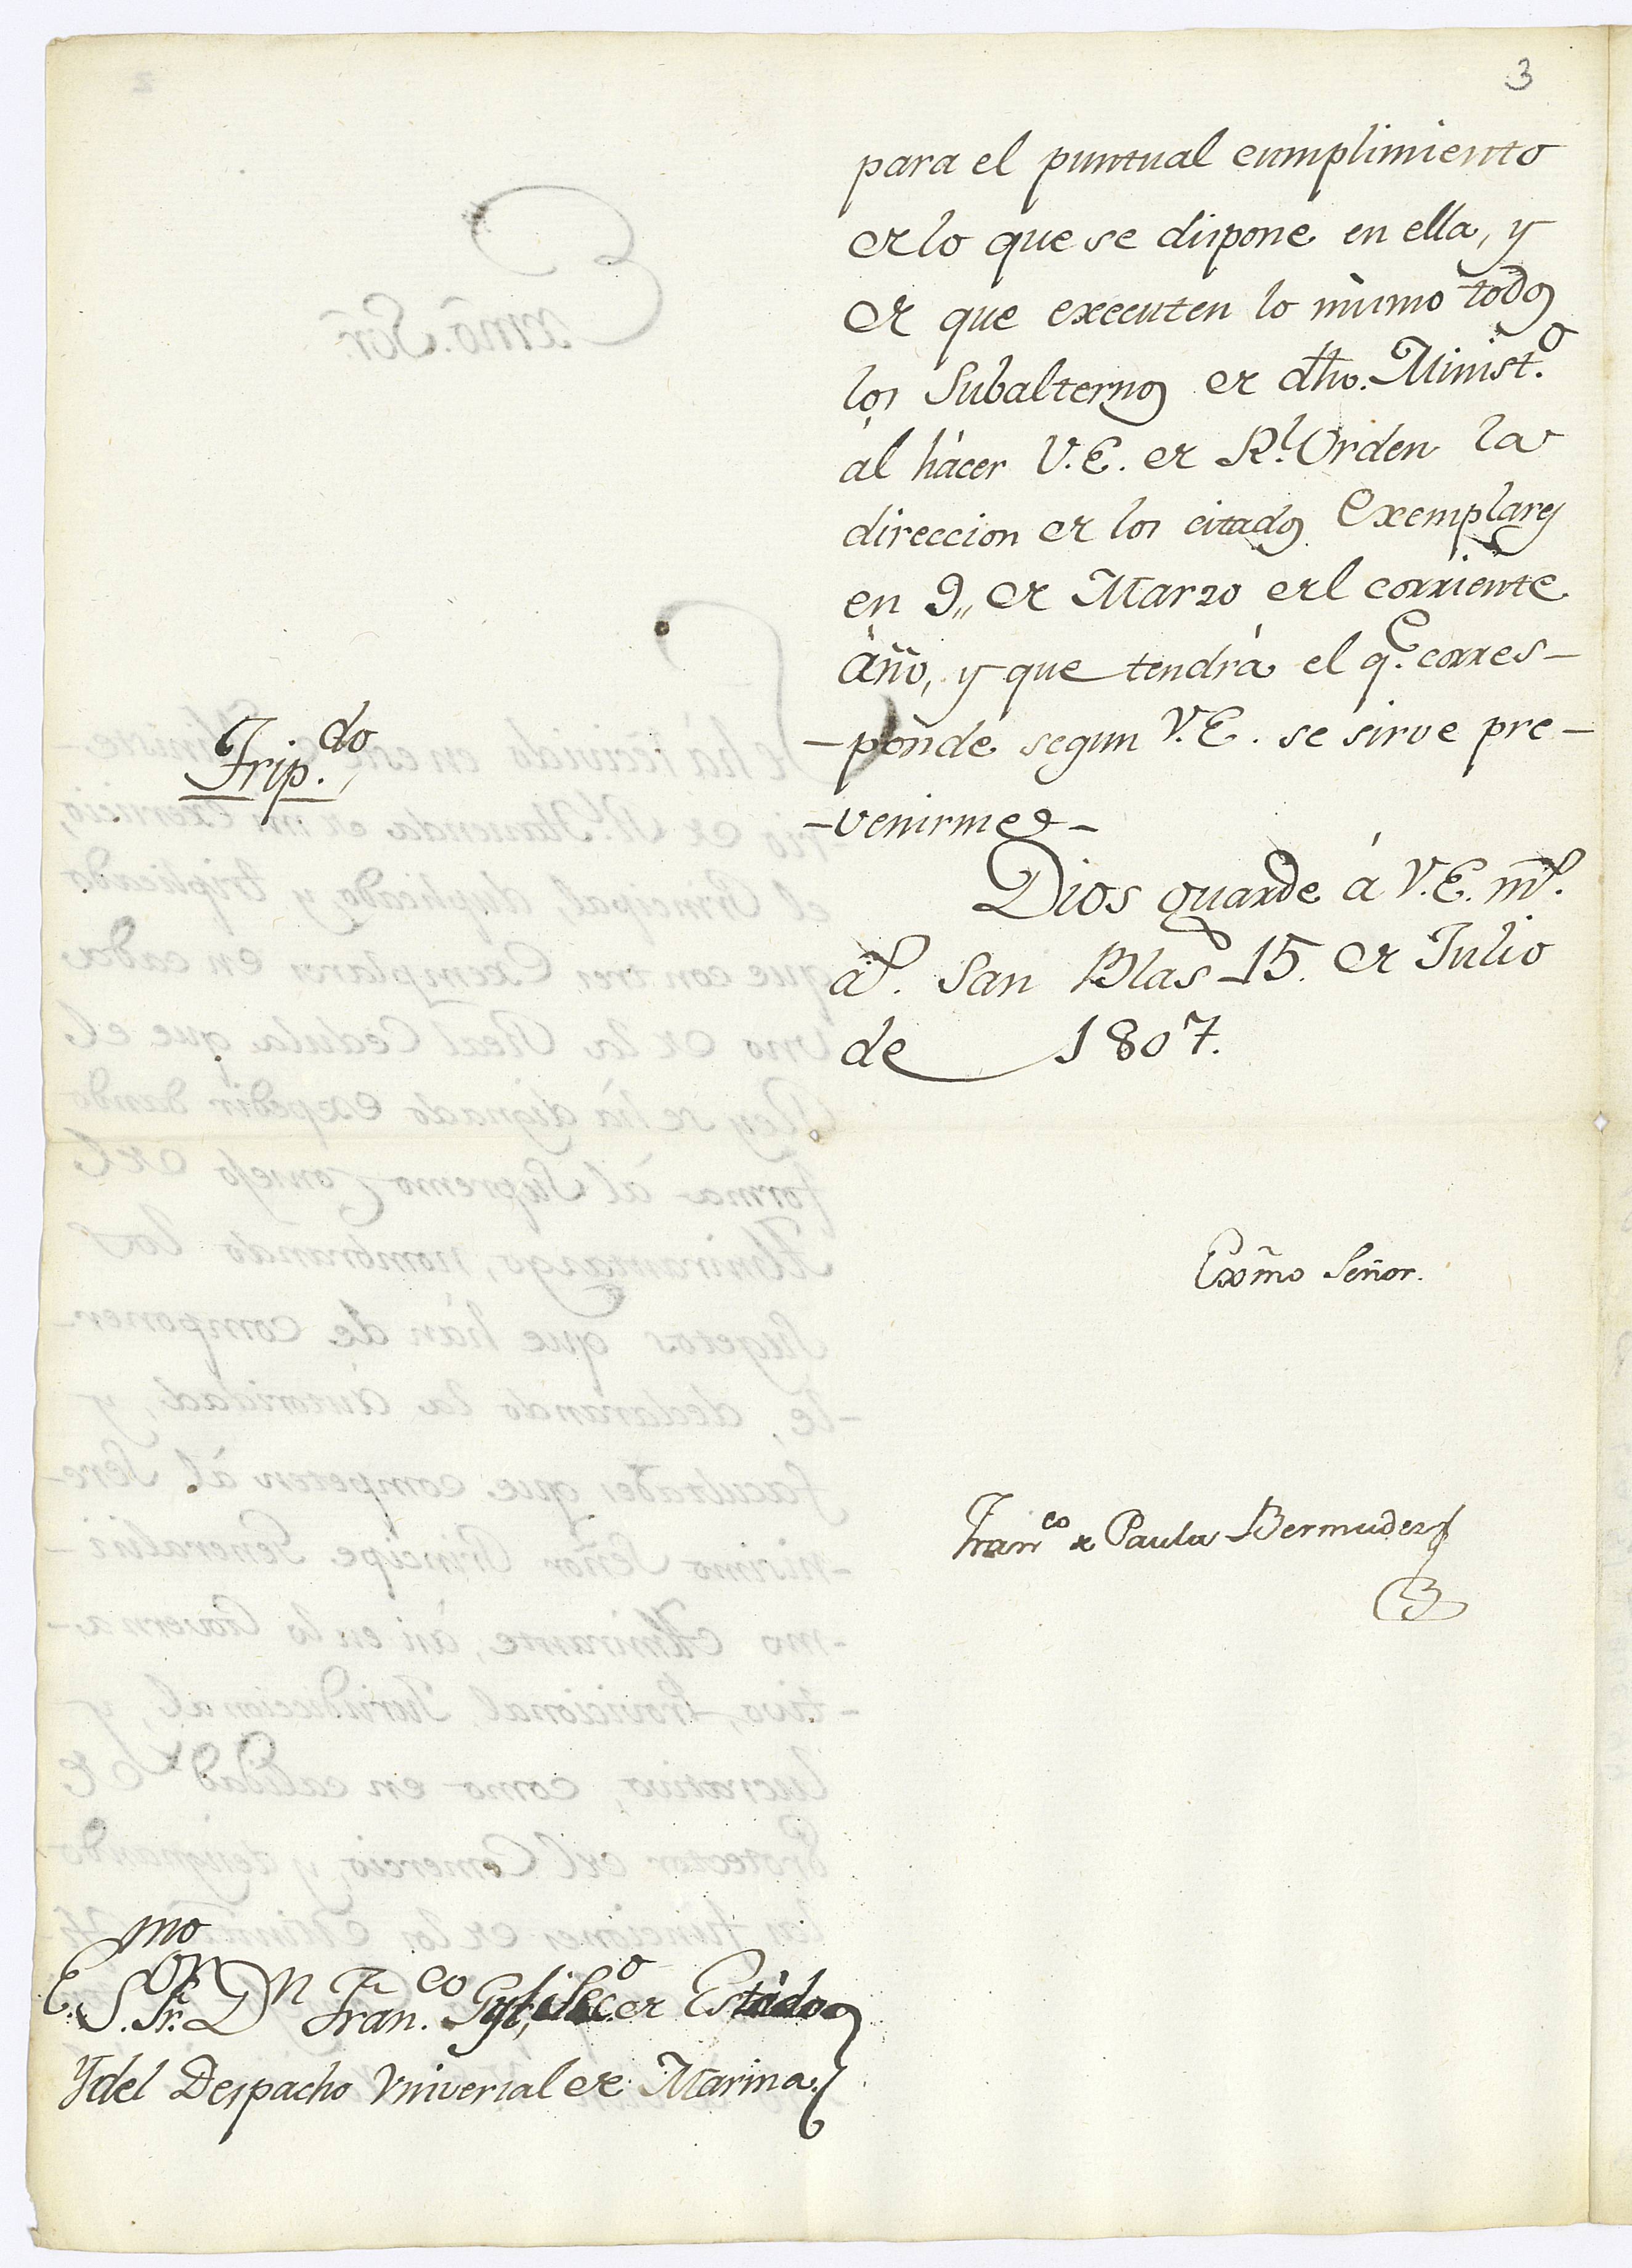 3
para el puntual cumplimiento
de lo que se dispone en ella, y
de que executen lo mismo todos
los Subalternos de dho. Minist.º
ál hàcer V.E. de Rl. Orden la
direccion de los citados Exemplares
en 9,, de Marzo del corriente
Año, y que tendrá el q.e corres-
-ponde segun V.E. se sirve pre-
-venirme.
Trip.do
Dios guarde á V.E. m.s
a.s San Blas 15. de Julio
de 1807.
Exm̃o Señor.
Fran.co de Paula Bermudez
E.mo S.or Sr. Dn Fran.co Gil, Sec.º de Estado
Y del Despacho Vniversal de Marina.